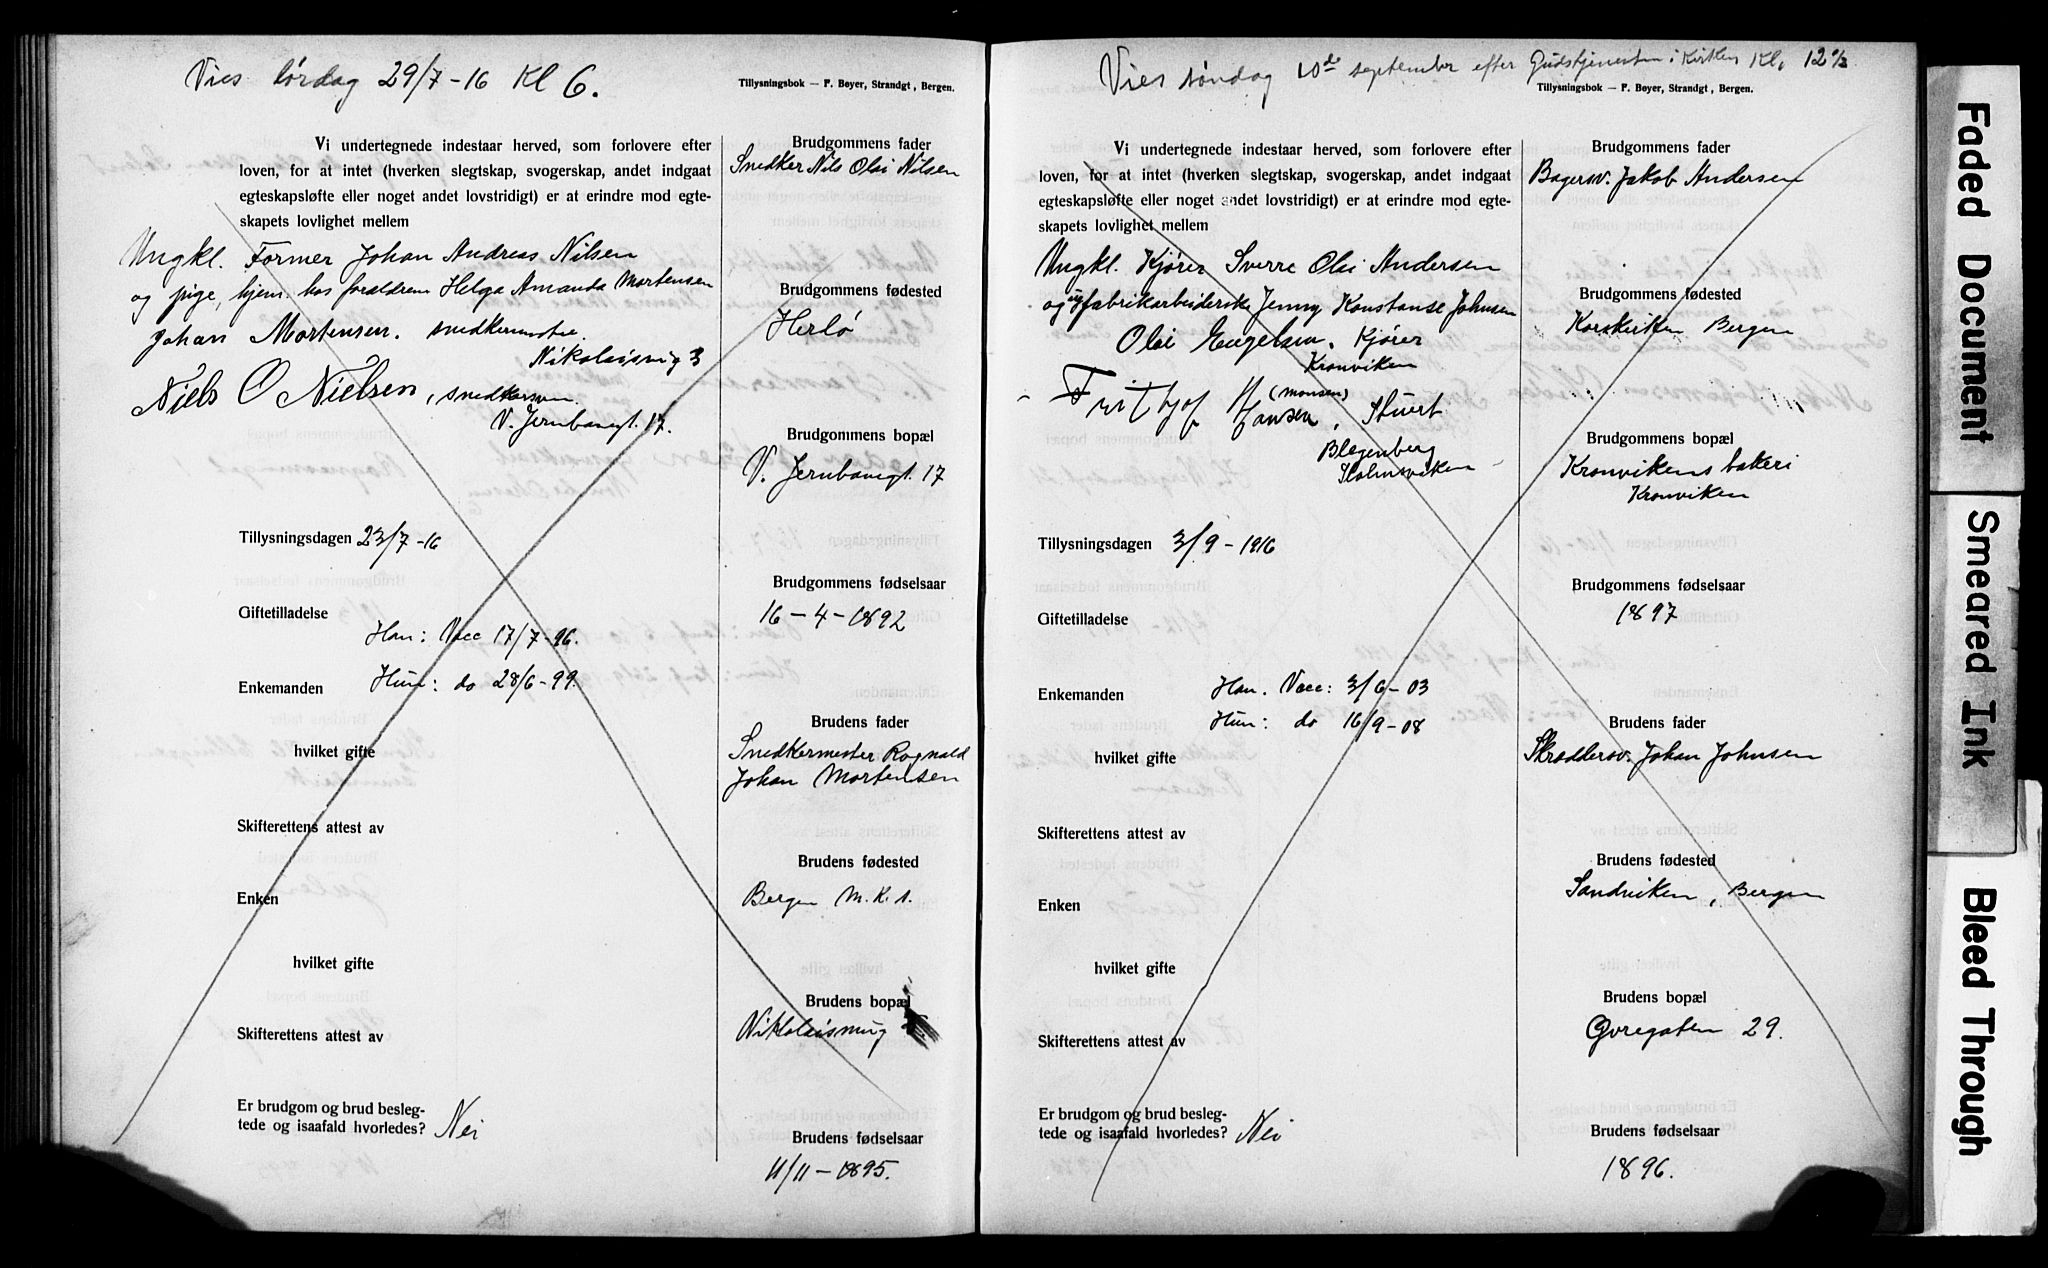 Vies lørdag 29/7-16 Kl 6.
Tillysningsbok — F. Bøyer, Strandgt, Bergen.
Vi undertegnede indestaar herved, som forlovere efter
loven, for at intet (hverken slegtskap, svogerskap, andet indgaat
egteskapsløfte eller noget andet lovstridigt) er at erindre mod egte-
skapets lovlighet mellem
Ungkl. Former Johan Andreas Nilsen
og pige, hjem. hos forældrene Helga Amanda Mortensen
Johan Mortensen. snedkermstr.
Nikolaismug 3
Niels O Nielsen, snedkersvn.
V. Jernbanegt. 17.
Tillysningsdagen 23/7-16
Giftetilladelse
Han: Vacc 17/7-96.
Hun: do 28/6-99.
Enkemanden
hvilket gifte
Skifterettens attest av
Enken
hvilket gifte
Skifterettens attest av
Er brudgom og brud besleg-
tede og isaafald hvorledes? Nei
Brudgommens fader
Snedker Nils Olai Nilsen
Brudgommens fødested
Herlø
Brudgommens bopæl
V. Jernbanegt. 17
Brudgommens fødselsaar
16-4-1892
Brudens fader
Snedkermester Rognald
Johan Mortensen
Brudens fødested
Bergen M.K.s.
Brudens bopæl
Nikolaismug
Brudens fødselsaar
11/11-1895.
Vies søndag 10de september efter Gudstjenesten i Kirken Kl. 12½
Tillysningsbok — F. Bøyer, Strandgt, Bergen.
Vi undertegnede indestaar herved, som forlovere efter
loven, for at intet (hverken slegtskap, svogerskap, andet indgaat
egteskapsløfte eller noget andet lovstridigt) er at erindre mod egte-
skapets lovlighet mellem
Ungkl. Kjører Sverre Olai Andersen
og ug. fabrikarbeiderske Jenny Konstanse Johnsen
Olai Engelsen. Kjører
Kronviken
Frithjof H (Monsen) Hansen, Stuert
Blegenberg
Holmsviken
Tillysningsdagen 3/9-1916
Giftetilladelse
Enkemanden
Han. Vacc: 3/6-03
Hun: do 16/9-08
hvilket gifte
Skifterettens attest av
Enken
hvilket gifte
Skifterettens attest av
Er brudgom og brud besleg-
tede og isaafald hvorledes? Nei
Brudgommens fader
Bagersv. Jakob Andersen
Brudgommens fødested
Korskirken Bergen
Brudgommens bopæl
Kronvikens bakeri
Kronviken
Brudgommens fødselsaar
1897
Brudens fader
Skræddersv. Johan Johnsen
Brudens fødested
Sandviken, Bergen
Brudens bopæl
Øvregaten 29.
Brudens fødselsaar
1896.
Faded Document
Smeared Ink
Bleed Through